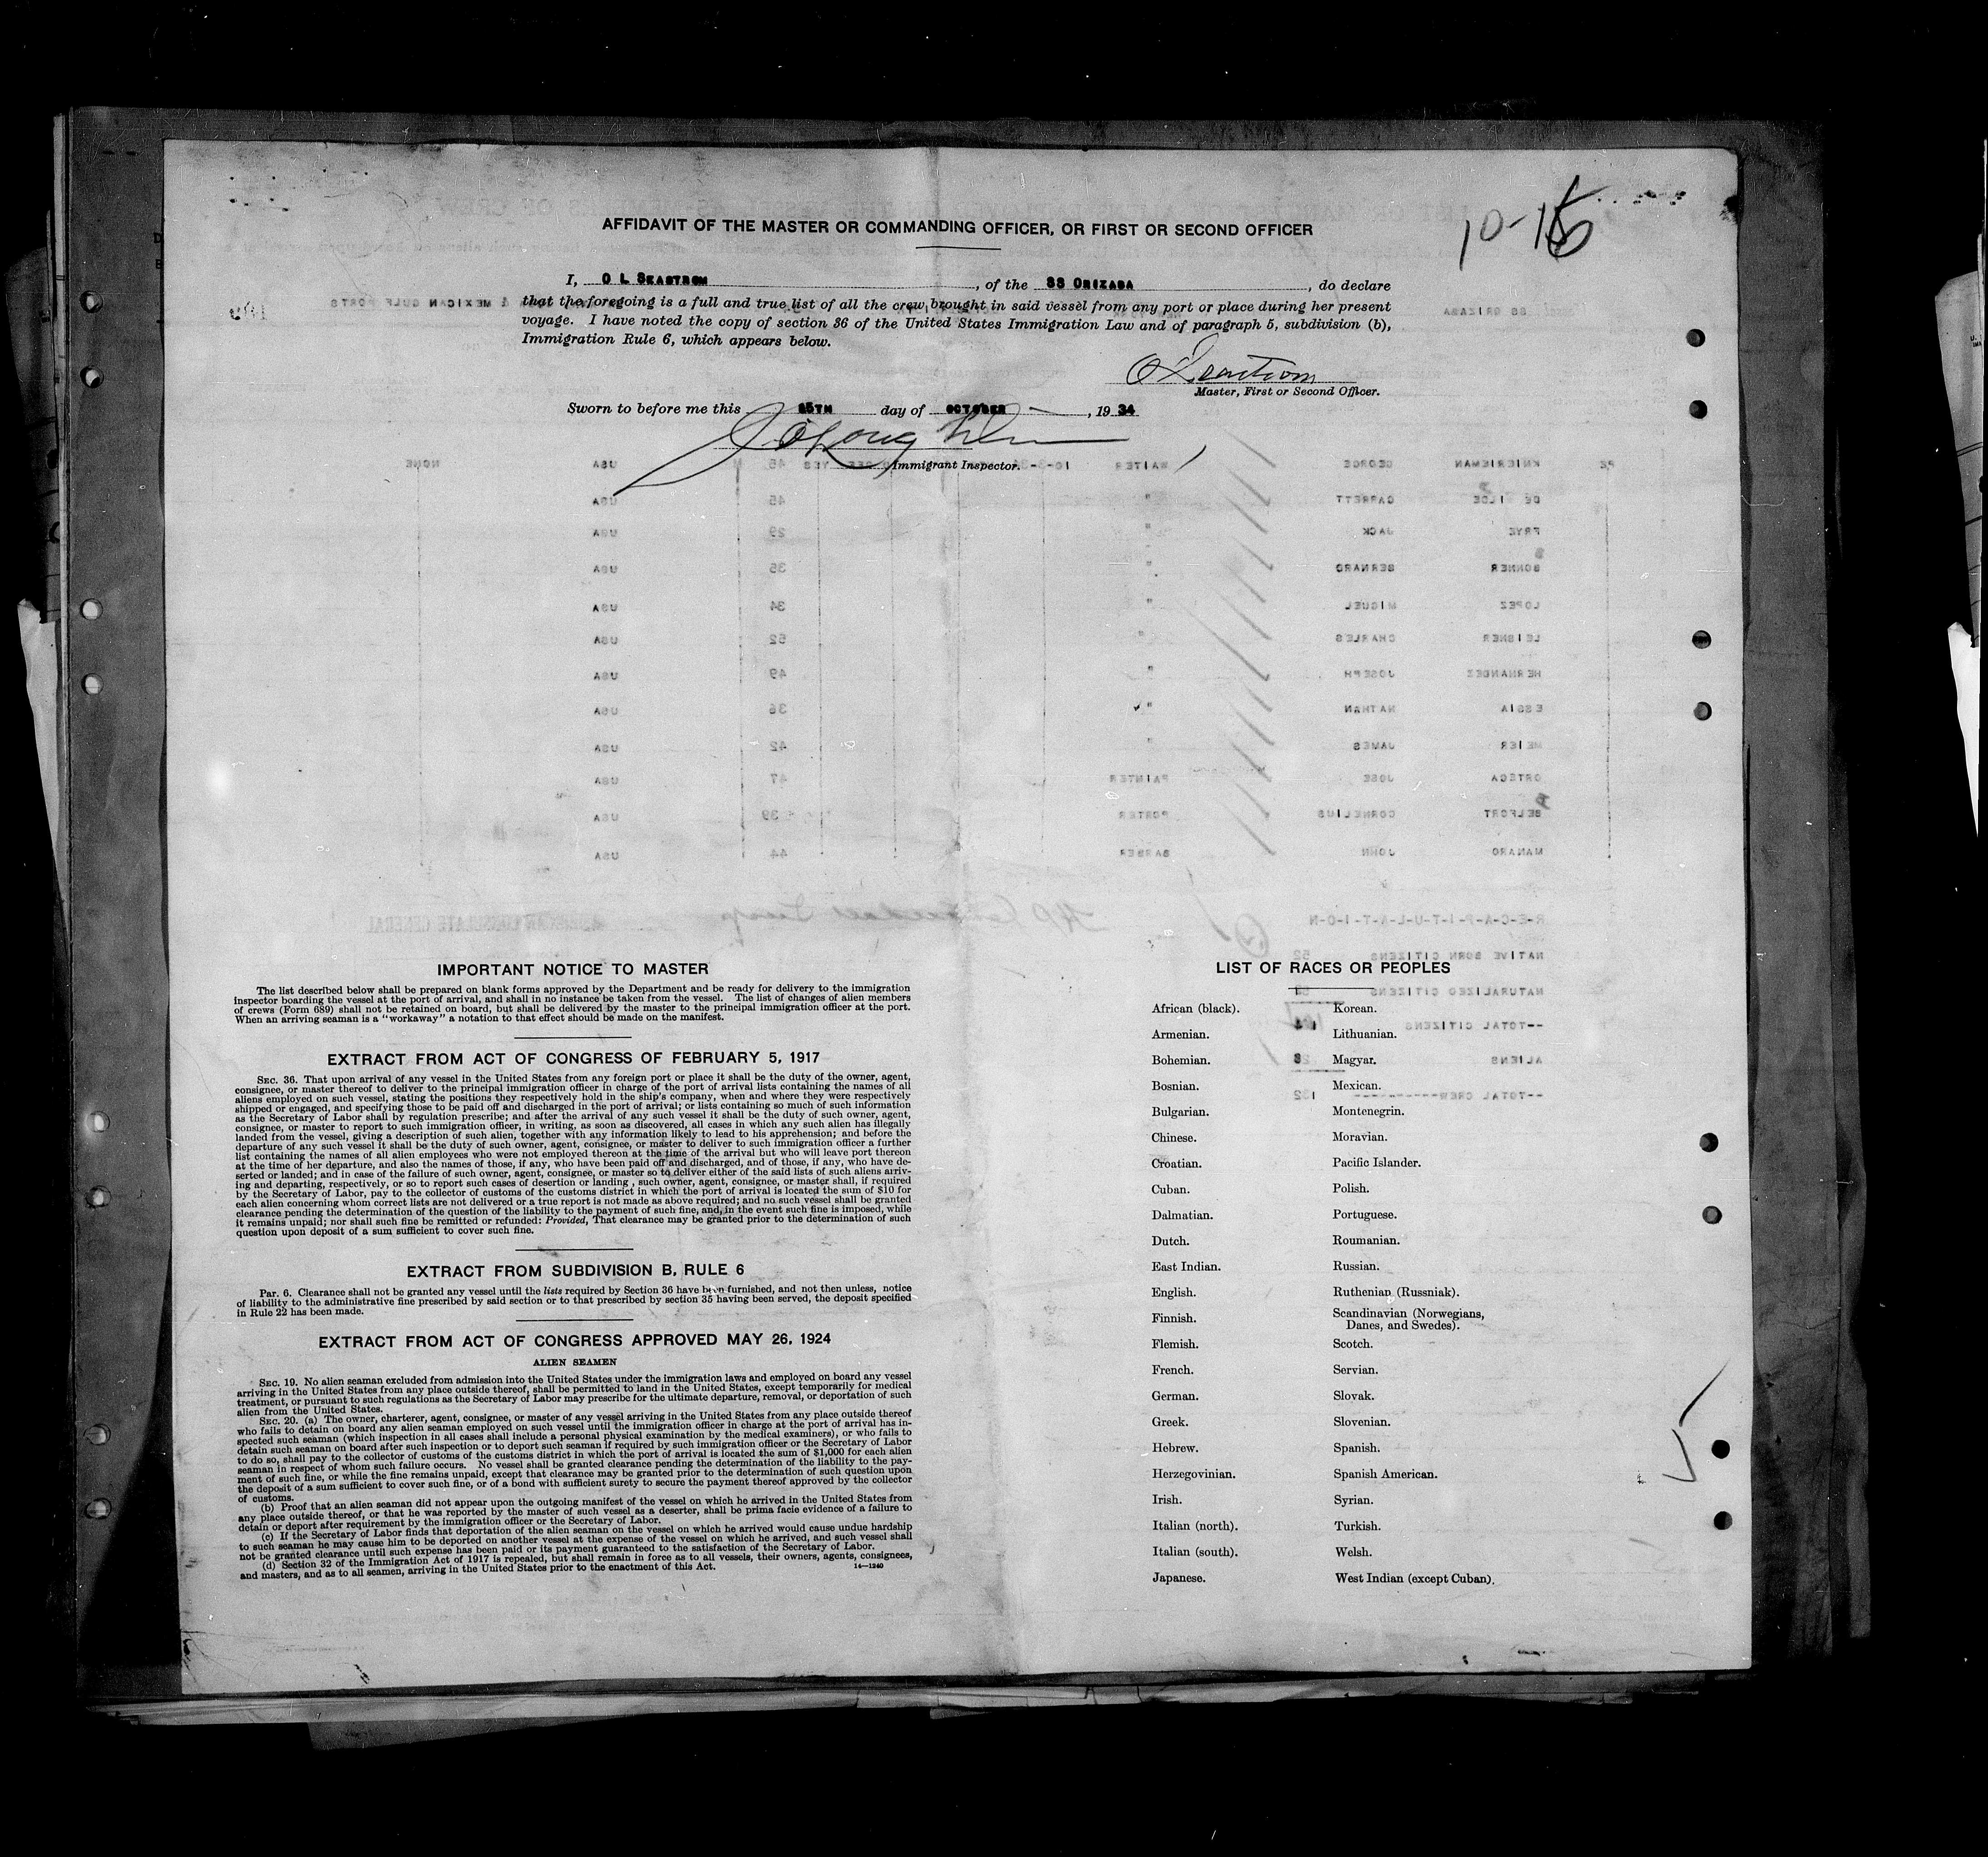 AFFIDAVIT OF THE MASTER OR COMMANDING OFFICER, OR FIRST OR SECOND OFFICER
10-15
I, O L SEASTROM, of the SS ORIZABA, do declare
that the foregoing is a full and true list of all the crew brought in said vessel from any port or place during her present
voyage. I have noted the copy of section 36 of the United States Immigration Law and of paragraph 5, subdivision (b),
Immigration Rule 6, which appears below.
O L Seastrom
Master, First or Second Officer.
Sworn to before me this 15TH day of OCTOBER, 19 34
Immigrant Inspector.
IMPORTANT NOTICE TO MASTER
The list described below shall be prepared on blank forms approved by the Department and be ready for delivery to the immigration
inspector boarding the vessel at the port of arrival, and shall in no instance be taken from the vessel. The list of changes of alien members
of crews (Form 689) shall not be retained on board, but shall be delivered by the master to the principal immigration officer at the port.
When an arriving seaman is a "workaway" a notation to that effect should be made on the manifest.
EXTRACT FROM ACT OF CONGRESS OF FEBRUARY 5, 1917
SEC. 36. That upon arrival of any vessel in the United States from any foreign port or place it shall be the duty of the owner, agent,
consignee, or master thereof to deliver to the principal immigration officer in charge of the port of arrival lists containing the names of all
aliens employed on such vessel, stating the positions they respectively hold in the ship's company, when and where they were respectively
shipped or engaged, and specifying those to be paid off and discharged in the port of arrival; or lists containing so much of such information
as the Secretary of Labor shall by regulation prescribe; and after the arrival of any such vessel it shall be the duty of such owner, agent,
consignee, or master to report to such immigration officer, in writing, as soon as discovered, all cases in which any such alien has illegally
landed from the vessel, giving a description of such alien, together with any information likely to lead to his apprehension; and before the
departure of any such vessel it shall be the duty of such owner, agent, consignee, or master to deliver to such immigration officer a further
list containing the names of all alien employees who were not employed thereon at the time of the arrival but who will leave port thereon
at the time of her departure, and also the names of those, if any, who have been paid off and discharged, and of those, if any, who have de-
serted or landed; and in case of the failure of such owner, agent, consignee, or master so to deliver either of the said lists of such aliens arriv-
ing and departing, respectively, or so to report such cases of desertion or landing , such owner, agent, consignee, or master shall, if required
by the Secretary of Labor, pay to the collector of customs of the customs district in which the port of arrival is located the sum of $10 for
each alien concerning whom correct lists are not delivered or a true report is not made as above required; and no such vessel shall be granted
clearance pending the determination of the question of the liability to the payment of such fine, and, in the event such fine is imposed, while
it remains unpaid; nor shall such fine be remitted or refunded: Provided, That clearance may be granted prior to the determination of such
question upon deposit of a sum sufficient to cover such fine.
EXTRACT FROM SUBDIVISION B, RULE 6
Par. 6. Clearance shall not be granted any vessel until the lists required by Section 36 have been furnished, and not then unless, notice
of liability to the administrative fine prescribed by said section or to that prescribed by section 35 having been served, the deposit specified
in Rule 22 has been made.
EXTRACT FROM ACT OF CONGRESS APPROVED MAY 26, 1924
ALIEN SEAMEN
SEC. 19. No alien seaman excluded from admission into the United States under the immigration laws and employed on board any vessel
arriving in the United States from any place outside thereof, shall be permitted to land in the United States, except temporarily for medical
treatment, or pursuant to such regulations as the Secretary of Labor may prescribe for the ultimate departure, removal, or deportation of such
alien from the United States.
SEC. 20. (a) The owner, charterer, agent, consignee, or master of any vessel arriving in the United States from any place outside thereof
who fails to detain on board any alien seaman employed on such vessel until the immigration officer in charge at the port of arrival has in-
spected such seaman (which inspection in all cases shall include a personal physical examination by the medical examiners), or who fails to
detain such seaman on board after such inspection or to deport such seaman if required by such immigration officer or the Secretary of Labor
to do so, shall pay to the collector of customs of the customs district in which the port of arrival is located the sum of $1,000 for each alien
seaman in respect of whom such failure occurs. No vessel shall be granted clearance pending the determination of the liability to the pay-
ment of such fine, or while the fine remains unpaid, except that clearance may be granted prior to the determination of such question upon
the deposit of a sum sufficient to cover such fine, or of a bond with sufficient surety to secure the payment thereof approved by the collector
of customs.
(b) Proof that an alien seaman did not appear upon the outgoing manifest of the vessel on which he arrived in the United States from
any place outside thereof, or that he was reported by the master of such vessel as a deserter, shall be prima facie evidence of a failure to
detain or deport after requirement by the immigration officer or the Secretary of Labor.
(c) If the Secretary of Labor finds that deportation of the alien seaman on the vessel on which he arrived would cause undue hardship
to such seaman he may cause him to be deported on another vessel at the expense of the vessel on which he arrived, and such vessel shall
not be granted clearance until such expense has been paid or its payment guaranteed to the satisfaction of the Secretary of Labor.
(d) Section 32 of the Immigration Act of 1917 is repealed, but shall remain in force as to all vessels, their owners, agents, consignees,
and masters, and as to all seamen, arriving in the United States prior to the enactment of this Act.
14—1240
LIST OF RACES OR PEOPLES
African (black).
Armenian.
Bohemian.
Bosnian.
Bulgarian.
Chinese.
Croatian.
Cuban.
Dalmatian.
Dutch.
East Indian.
English.
Finnish.
Flemish.
French.
German.
Greek.
Hebrew.
Herzegovinian.
Irish.
Italian (north).
Italian (south).
Japanese.
Korean.
Lithuanian.
Magyar.
Mexican.
Montenegrin.
Moravian.
Pacific Islander.
Polish.
Portuguese.
Roumanian.
Russian.
Ruthenian (Russniak).
Scandinavian (Norwegians,
Danes, and Swedes).
Scotch.
Servian.
Slovak.
Slovenian.
Spanish.
Spanish American.
Syrian.
Turkish.
Welsh.
West Indian (except Cuban).